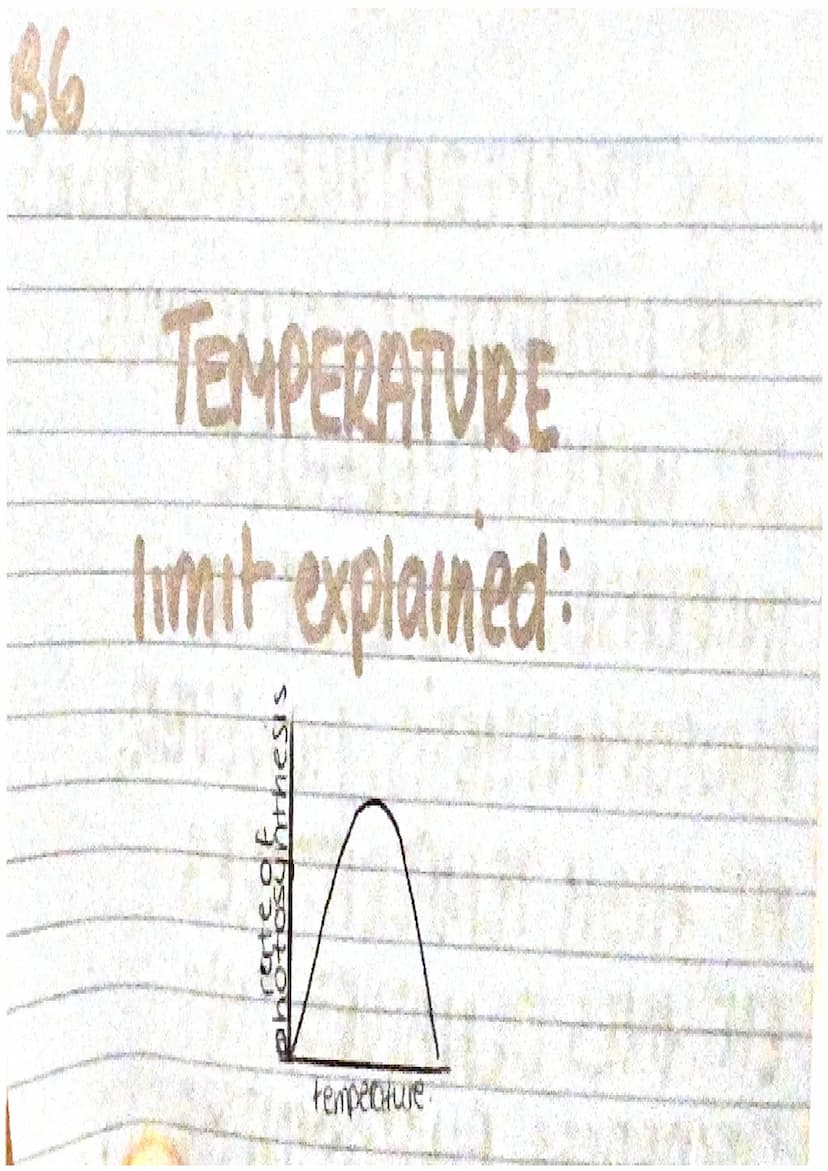 B6
TEMPERATURE
limit explained:
rate of
photosynthesis
temperature